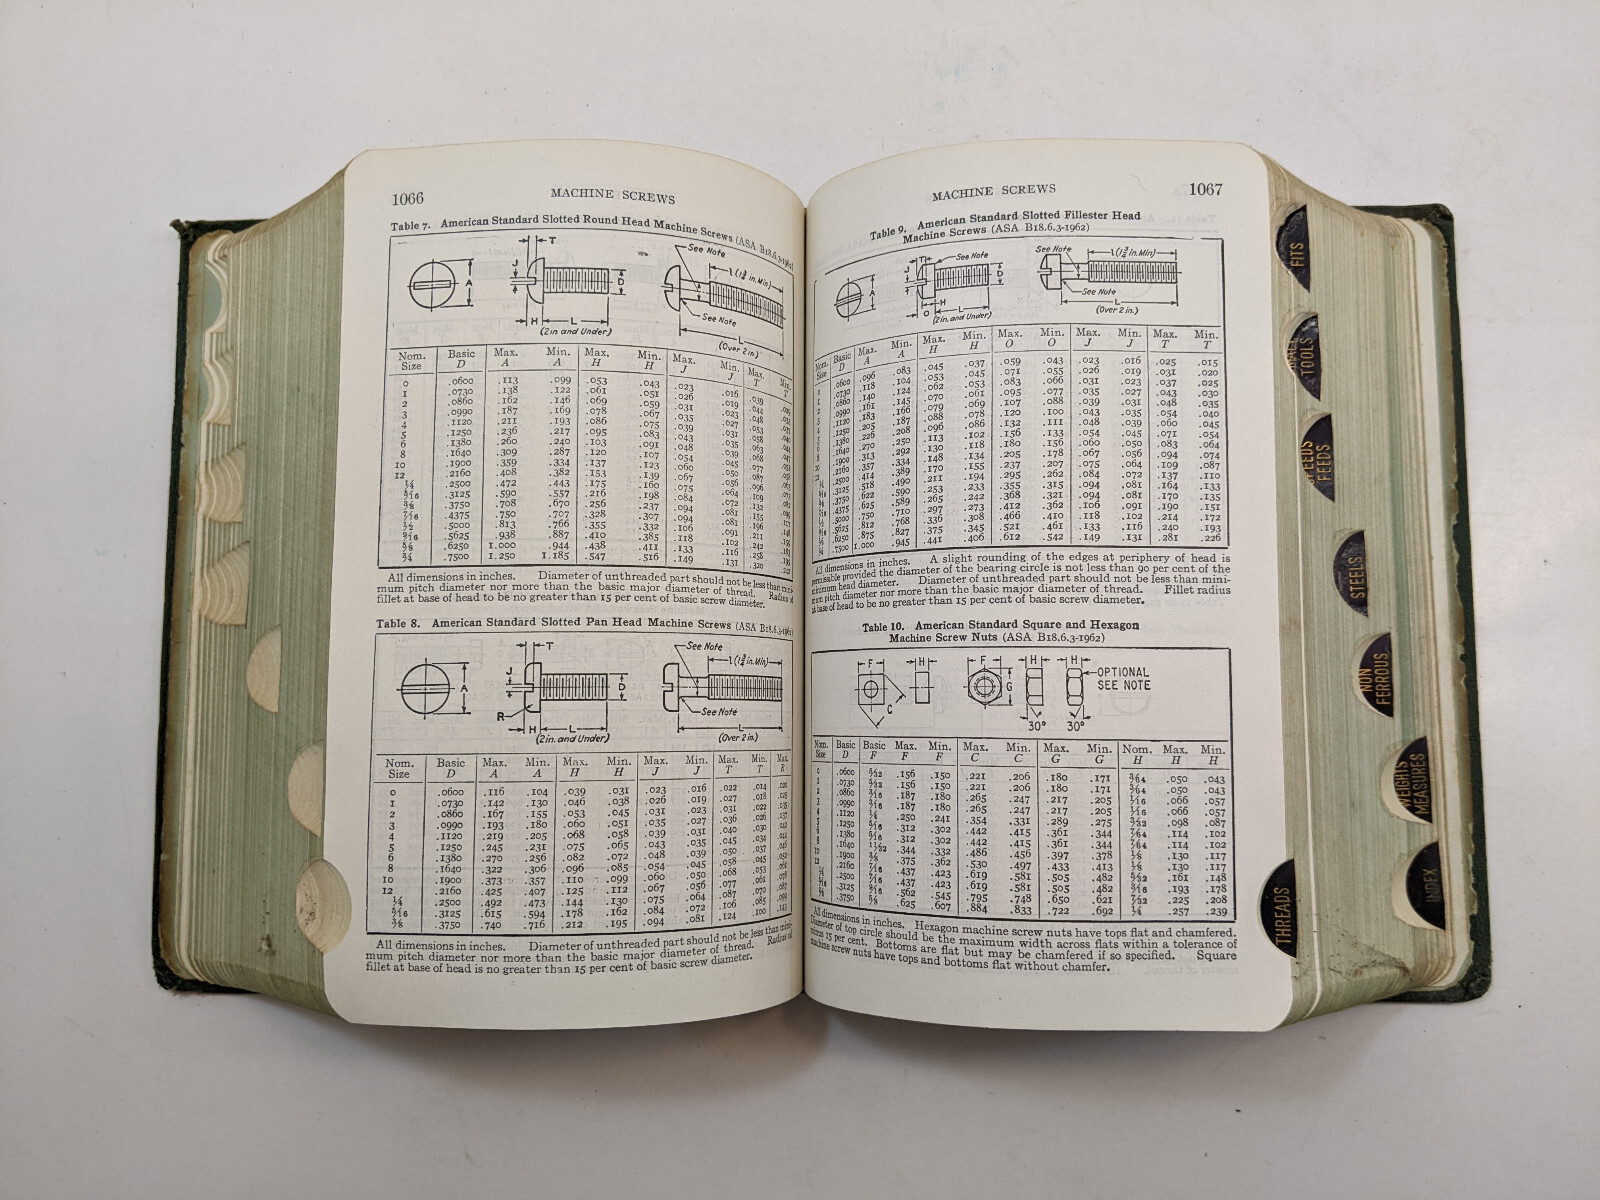 1066
MACHINE SCREWS
Table 7. American Standard Slotted Round Head Machine Screws (ASA B18.6.3-1962)
T
J
A
D
H
L
(2 in. and Under)
See Note
l (1¾ in. Min)
See Note
L
(Over 2 in.)
Nom. Size Basic D Max. A Min. A Max. H Min. H Max. J Min. J Max. T Min. T
0 .0600 .113 .099 .053 .043 .023 .016 .039
1 .0730 .138 .122 .061 .051 .026 .019 .044
2 .0860 .162 .146 .069 .059 .031 .023 .048
3 .0990 .187 .169 .078 .067 .035 .027 .053
4 .1120 .211 .193 .086 .075 .039 .031 .058
5 .1250 .236 .217 .095 .083 .043 .035 .063
6 .1380 .260 .240 .103 .091 .048 .039 .068
8 .1640 .309 .287 .120 .107 .054 .045 .077
10 .1900 .359 .334 .137 .123 .060 .050 .087
12 .2160 .408 .382 .153 .139 .067 .056 .096
¼ .2500 .472 .443 .175 .160 .075 .064 .109
5/16 .3125 .590 .557 .216 .198 .084 .072 .132
⅜ .3750 .708 .670 .256 .237 .094 .081 .155
7/16 .4375 .750 .707 .328 .307 .094 .081 .196
½ .5000 .813 .766 .355 .332 .106 .091 .211
9/16 .5625 .938 .887 .410 .385 .118 .102 .242
⅝ .6250 1.000 .944 .438 .411 .133 .116 .258
¾ .7500 1.250 1.185 .547 .516 .149 .131 .320
All dimensions in inches. Diameter of unthreaded part should not be less than mini-
mum pitch diameter nor more than the basic major diameter of thread. Radius of
fillet at base of head to be no greater than 15 per cent of basic screw diameter.
Table 8. American Standard Slotted Pan Head Machine Screws (ASA B18.6.3-1962)
T
J
A
D
R
H
L
(2 in. and Under)
See Note
l (1¾ in. Min)
See Note
L
(Over 2 in.)
Nom. Size Basic D Max. A Min. A Max. H Min. H Max. J Min. J Max. T Min. T Max. R
0 .0600 .116 .104 .039 .031 .023 .016 .022 .014
1 .0730 .142 .130 .046 .038 .026 .019 .027 .018
2 .0860 .167 .155 .053 .045 .031 .023 .031 .022
3 .0990 .193 .180 .060 .051 .035 .027 .036 .026
4 .1120 .219 .205 .068 .058 .039 .031 .040 .030
5 .1250 .245 .231 .075 .065 .043 .035 .045 .034
6 .1380 .270 .256 .082 .072 .048 .039 .050 .037
8 .1640 .322 .306 .096 .085 .054 .045 .058 .045
10 .1900 .373 .357 .110 .099 .060 .050 .068 .053
12 .2160 .425 .407 .125 .112 .067 .056 .077 .061
¼ .2500 .492 .473 .144 .130 .075 .064 .087 .070
5/16 .3125 .615 .594 .178 .162 .084 .072 .106 .085
⅜ .3750 .740 .716 .212 .195 .094 .081 .124 .100
All dimensions in inches. Diameter of unthreaded part should not be less than mini-
mum pitch diameter nor more than the basic major diameter of thread. Radius of
fillet at base of head is no greater than 15 per cent of basic screw diameter.
MACHINE SCREWS
1067
Table 9. American Standard Slotted Fillester Head
Machine Screws (ASA B18.6.3-1962)
T
See Note
J
A
D
H
O
L
(2 in. and Under)
See Note
l (1¾ in. Min)
See Note
L
(Over 2 in.)
Nom. Size Basic D Max. A Min. A Max. H Min. H Max. O Min. O Max. J Min. J Max. T Min. T
0 .0600 .096 .083 .045 .037 .059 .043 .023 .016 .025 .015
1 .0730 .118 .104 .053 .045 .071 .055 .026 .019 .031 .020
2 .0860 .140 .124 .062 .053 .083 .066 .031 .023 .037 .025
3 .0990 .161 .145 .070 .061 .095 .077 .035 .027 .043 .030
4 .1120 .183 .166 .079 .069 .107 .088 .039 .031 .048 .035
5 .1250 .205 .187 .088 .078 .120 .100 .043 .035 .054 .040
6 .1380 .226 .208 .096 .086 .132 .111 .048 .039 .060 .045
8 .1640 .270 .250 .113 .102 .156 .133 .054 .045 .071 .054
10 .1900 .313 .292 .130 .118 .180 .156 .060 .050 .083 .064
12 .2160 .357 .334 .148 .134 .205 .178 .067 .056 .094 .074
¼ .2500 .414 .389 .170 .155 .237 .207 .075 .064 .109 .087
5/16 .3125 .518 .490 .211 .194 .295 .262 .084 .072 .137 .110
⅜ .3750 .622 .590 .253 .233 .355 .315 .094 .081 .164 .133
7/16 .4375 .625 .589 .265 .242 .368 .321 .094 .081 .170 .135
½ .5000 .750 .710 .297 .273 .412 .362 .106 .091 .190 .151
9/16 .5625 .812 .768 .336 .308 .466 .410 .118 .102 .214 .172
⅝ .6250 .875 .827 .375 .345 .521 .461 .133 .116 .240 .193
¾ .7500 1.000 .945 .441 .406 .612 .542 .149 .131 .281 .226
All dimensions in inches. A slight rounding of the edges at periphery of head is
permissible provided the diameter of the bearing circle is not less than 90 per cent of the
minimum head diameter. Diameter of unthreaded part should not be less than mini-
mum pitch diameter nor more than the basic major diameter of thread. Fillet radius
at base of head to be no greater than 15 per cent of basic screw diameter.
Table 10. American Standard Square and Hexagon
Machine Screw Nuts (ASA B18.6.3-1962)
F
H
C
F
G
H
H
30°
30°
OPTIONAL
SEE NOTE
Nom. Size Basic D Basic F Max. F Min. F Max. C Min. C Max. G Min. G Nom. H Max. H Min. H
0 .0600 5/32 .156 .150 .221 .206 .180 .171 3/64 .050 .043
1 .0730 5/32 .156 .150 .221 .206 .180 .171 3/64 .050 .043
2 .0860 3/16 .187 .180 .265 .247 .217 .205 1/16 .066 .057
3 .0990 3/16 .187 .180 .265 .247 .217 .205 1/16 .066 .057
4 .1120 ¼ .250 .241 .354 .331 .289 .275 3/32 .098 .087
5 .1250 5/16 .312 .302 .442 .415 .361 .344 7/64 .114 .102
6 .1380 5/16 .312 .302 .442 .415 .361 .344 7/64 .114 .102
8 .1640 11/32 .344 .332 .486 .456 .397 .378 ⅛ .130 .117
10 .1900 ⅜ .375 .362 .530 .497 .433 .413 ⅛ .130 .117
12 .2160 7/16 .437 .423 .619 .581 .505 .482 5/32 .161 .148
¼ .2500 7/16 .437 .423 .619 .581 .505 .482 3/16 .193 .178
5/16 .3125 9/16 .562 .545 .795 .748 .650 .621 7/32 .225 .208
⅜ .3750 ⅝ .625 .607 .884 .833 .722 .692 ¼ .257 .239
All dimensions in inches. Hexagon machine screw nuts have tops flat and chamfered.
Diameter of top circle should be the maximum width across flats within a tolerance of
minus 15 per cent. Bottoms are flat but may be chamfered if so specified. Square
machine screw nuts have tops and bottoms flat without chamfer.
FITS
TOOLS
SPEEDS
FEEDS
STEELS
NON
FERROUS
WEIGHTS
MEASURES
INDEX
THREADS